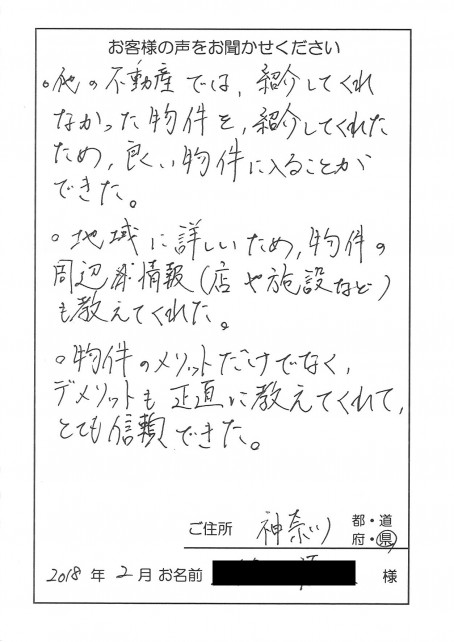 お客様の声をお聞かせください
○他の不動産では、紹介してくれ
なかった物件を、紹介してくれた
ため、良い物件に入ることが
できた。
○地域に詳しいため、物件の
周辺情報（店や施設など）
も教えてくれた。
○物件のメリットだけでなく、
デメリットも正直に教えてくれて、
とても信頼できた。
ご住所 神奈川 都・道
府・県
2018年2月 お名前 様